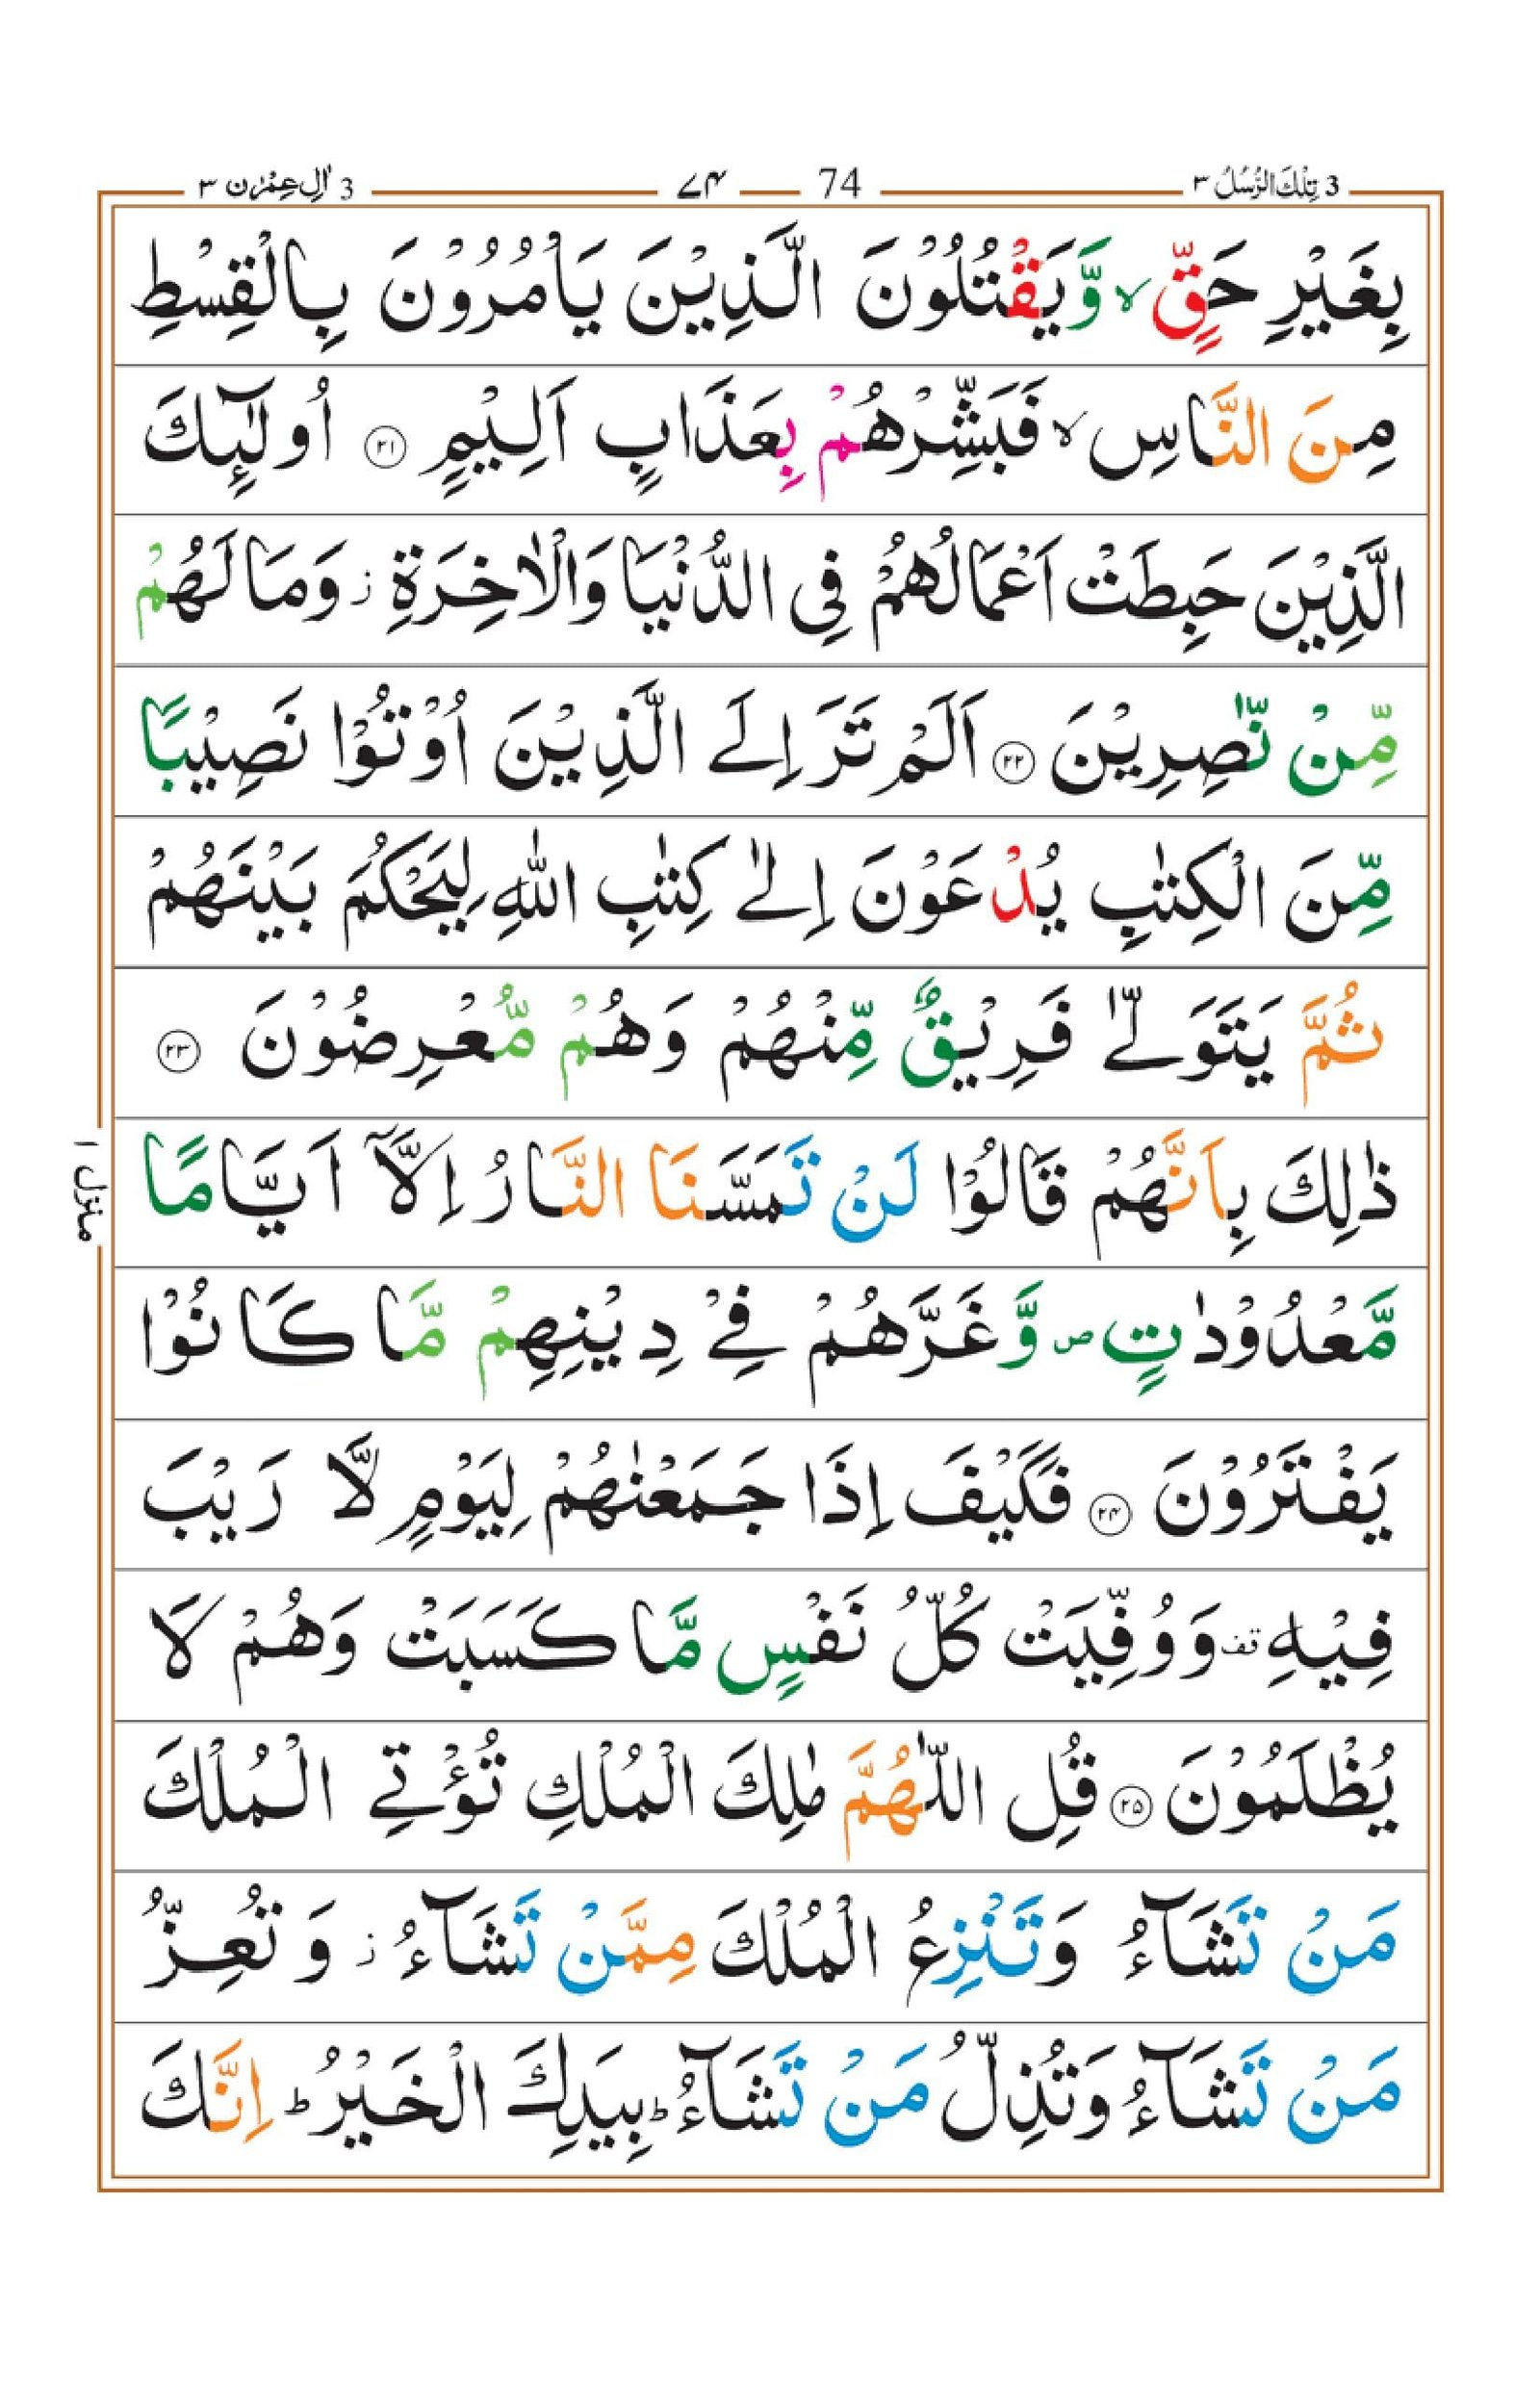 3 تِلْكَ الرُّسُلُ ٣ 74 ٧٤ 3 اٰلِ عِمْرٰن ٣
بِغَيْرِ حَقٍّ ۙ وَّيَقْتُلُوْنَ الَّذِيْنَ يَاْمُرُوْنَ بِالْقِسْطِ
مِنَ النَّاسِ ۙ فَبَشِّرْهُمْ بِعَذَابٍ اَلِيْمٍ ﴿۲۱﴾ اُولٰٓئِكَ
الَّذِيْنَ حَبِطَتْ اَعْمَالُهُمْ فِى الدُّنْيَا وَالْاٰخِرَةِ ز وَمَا لَهُمْ
مِّنْ نّٰصِرِيْنَ ﴿۲۲﴾ اَلَمْ تَرَ اِلَى الَّذِيْنَ اُوْتُوْا نَصِيْبًا
مِّنَ الْكِتٰبِ يُدْعَوْنَ اِلٰى كِتٰبِ اللّٰهِ لِيَحْكُمَ بَيْنَهُمْ
ثُمَّ يَتَوَلّٰى فَرِيْقٌ مِّنْهُمْ وَهُمْ مُّعْرِضُوْنَ ﴿۲۳﴾
ذٰلِكَ بِاَنَّهُمْ قَالُوْا لَنْ تَمَسَّنَا النَّارُ اِلَّآ اَيَّامًا
مَّعْدُوْدٰتٍ ص وَّغَرَّهُمْ فِىْ دِيْنِهِمْ مَّا كَانُوْا
يَفْتَرُوْنَ ﴿۲۴﴾ فَكَيْفَ اِذَا جَمَعْنٰهُمْ لِيَوْمٍ لَّا رَيْبَ
فِيْهِ قف وَوُفِّيَتْ كُلُّ نَفْسٍ مَّا كَسَبَتْ وَهُمْ لَا
يُظْلَمُوْنَ ﴿۲۵﴾ قُلِ اللّٰهُمَّ مٰلِكَ الْمُلْكِ تُؤْتِى الْمُلْكَ
مَنْ تَشَآءُ وَتَنْزِعُ الْمُلْكَ مِمَّنْ تَشَآءُ ز وَتُعِزُّ
مَنْ تَشَآءُ وَتُذِلُّ مَنْ تَشَآءُ ؕ بِيَدِكَ الْخَيْرُ ؕ اِنَّكَ
منزل ١